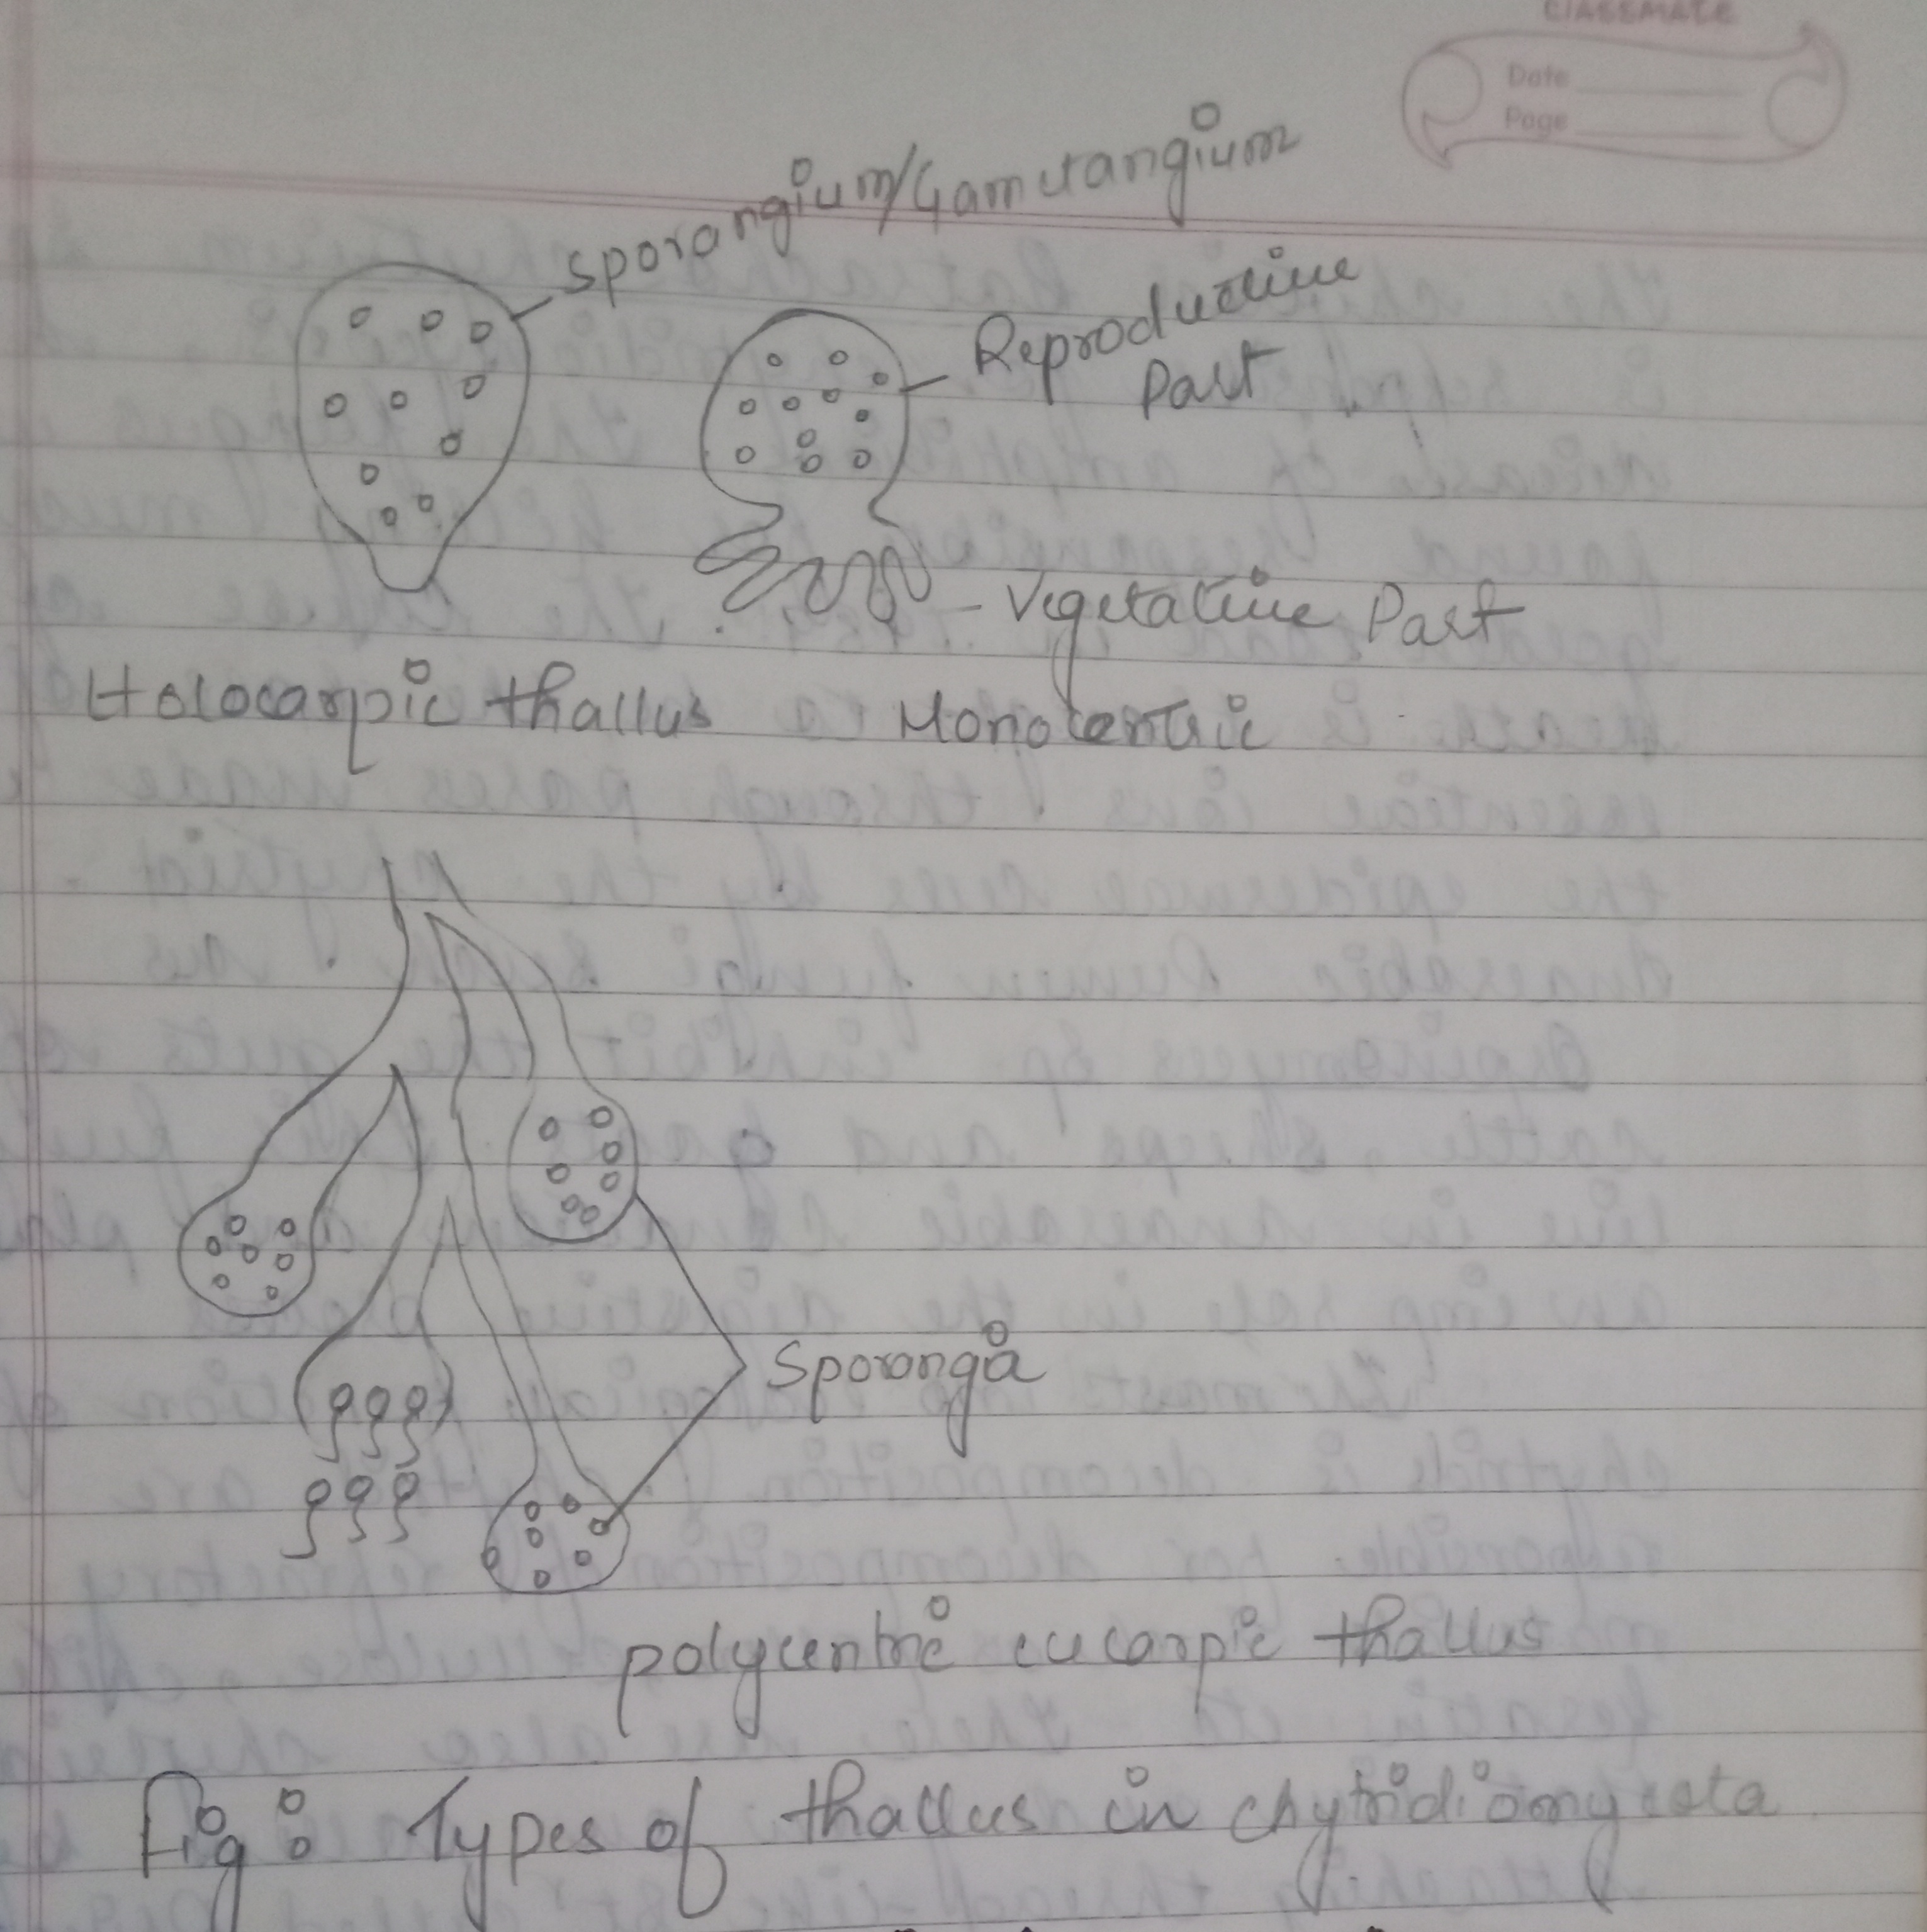 classmate
Date
Page
Sporangium/Gametangium
Reproductive
Part
Vegetative Part
Holocarpic thallus
Monocentric
Sporangia
polycentric eucarpic thallus
Fig: Types of thallus in chytridiomycota